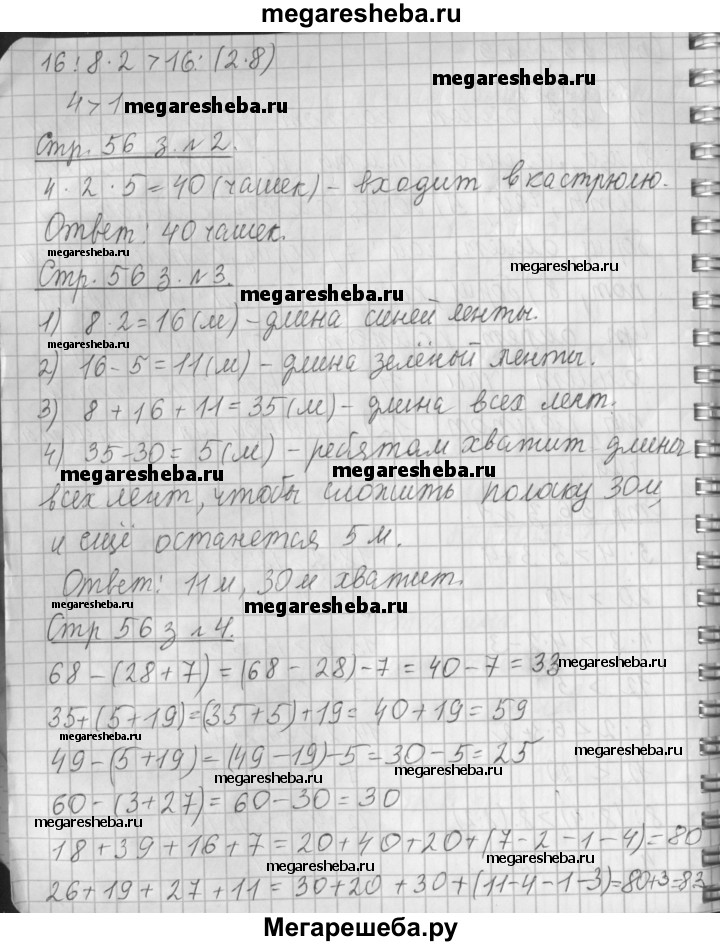 megaresheba.ru
16:8·2>16:(2·8)
4>1
megaresheba.ru
megaresheba.ru
Стр. 56 з. №2.
4·2·5=40(чашек)-входит в кастрюлю.
Ответ: 40 чашек.
megaresheba.ru
megaresheba.ru
Стр. 56 з. №3.
megaresheba.ru
1) 8·2=16(м)-длина синей ленты.
2) 16-5=11(м)-длина зелёный ленты.
3) 8+16+11=35(м)-длина всех лент.
4) 35-30=5(м)-ребятам хватит длины
megaresheba.ru
megaresheba.ru
всех лент, чтобы сложить полоску 30м,
и ещё останется 5 м.
Ответ: 11м, 30м хватит.
megaresheba.ru
megaresheba.ru
Стр 56 з №4.
68-(28+7)=(68-28)-7=40-7=33
megaresheba.ru
35+(5+19)=(35+5)+19=40+19=59
megaresheba.ru
49-(5+19)=(49-19)-5=30-5=25
megaresheba.ru
megaresheba.ru
megaresheba.ru
60-(3+27)=60-30=30
megaresheba.ru
18+39+16+7=20+40+20+(7-2-1-4)=80
megaresheba.ru
megaresheba.ru
26+19+27+11=30+20+30+(11-4-1-3)=80+3=83
Мегарешеба.ру